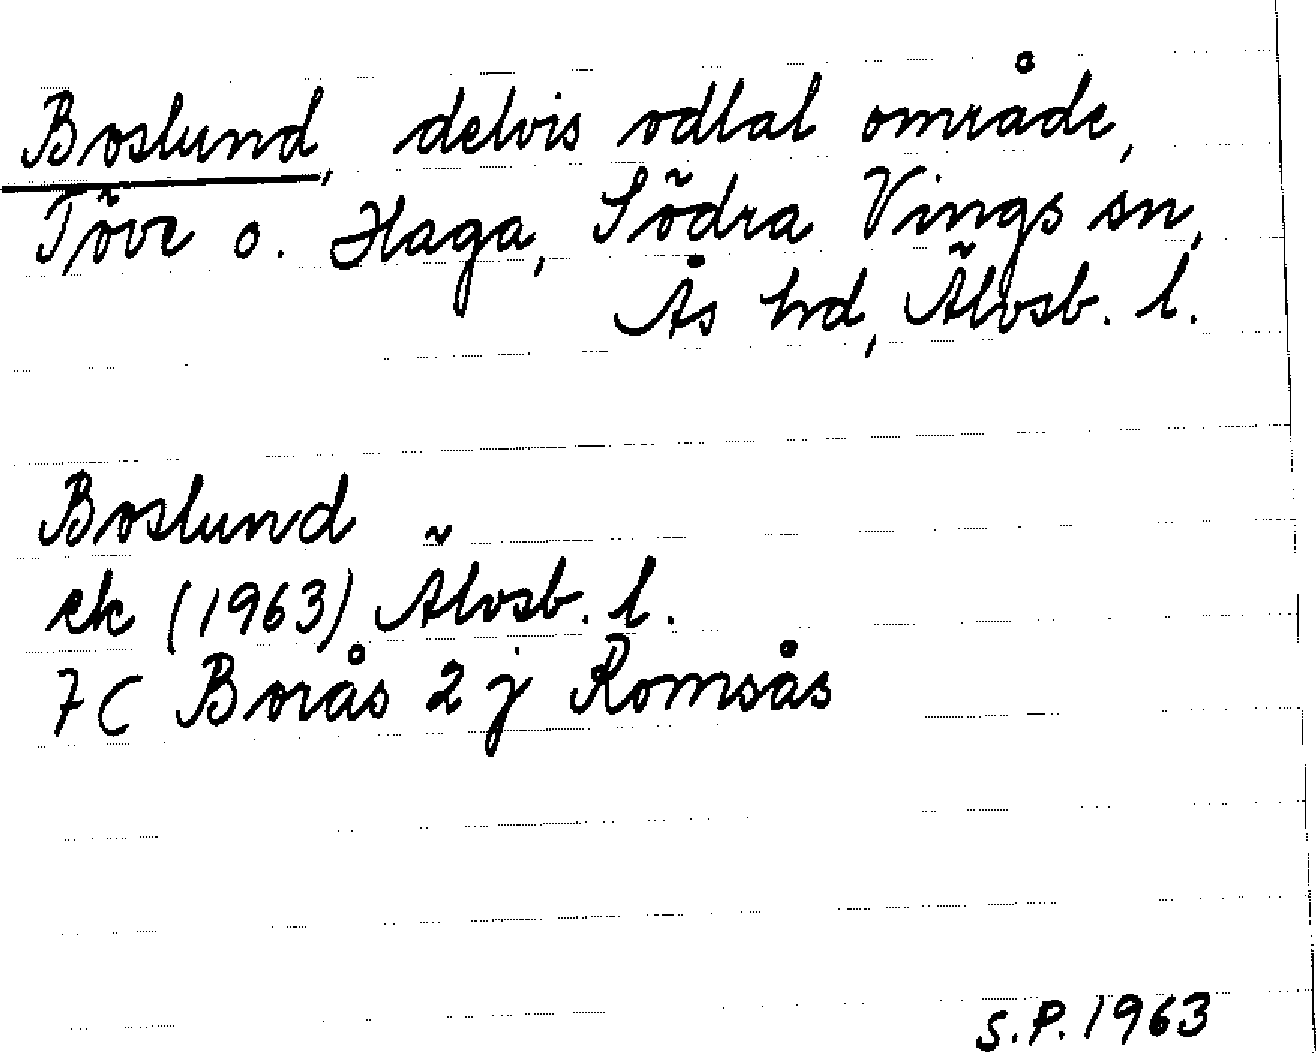 Boslund, delvis odlat område,
Töve o. Haga, Södra Vings sn,
Ås hd, Älvsb. l.
Boslund
ek (1963) Älvsb. l.
7C Borås 2 j Romsås
S.P. 1963